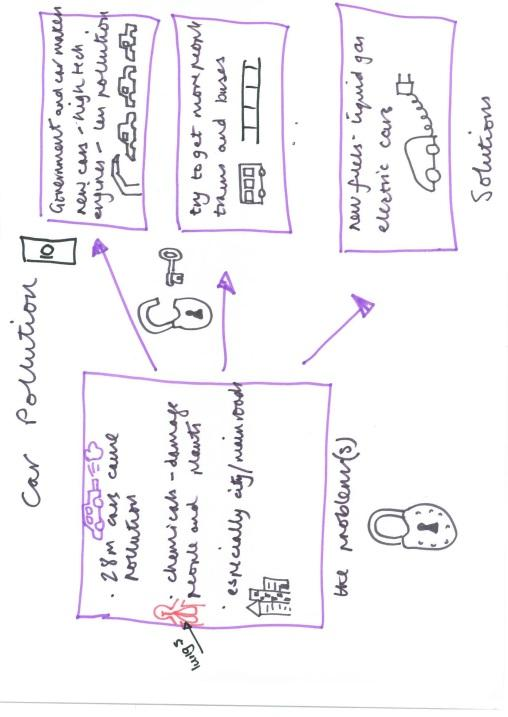 Car Pollution
10
· 28m cars cause
pollution
· chemicals - damage
people and plants
· especially city/main roads
lungs
the problem(s)
Government and car makers
new cars - high tech
engines - less pollution
try to get more people
trains and buses
new fuels - liquid gas
electric cars
Solutions